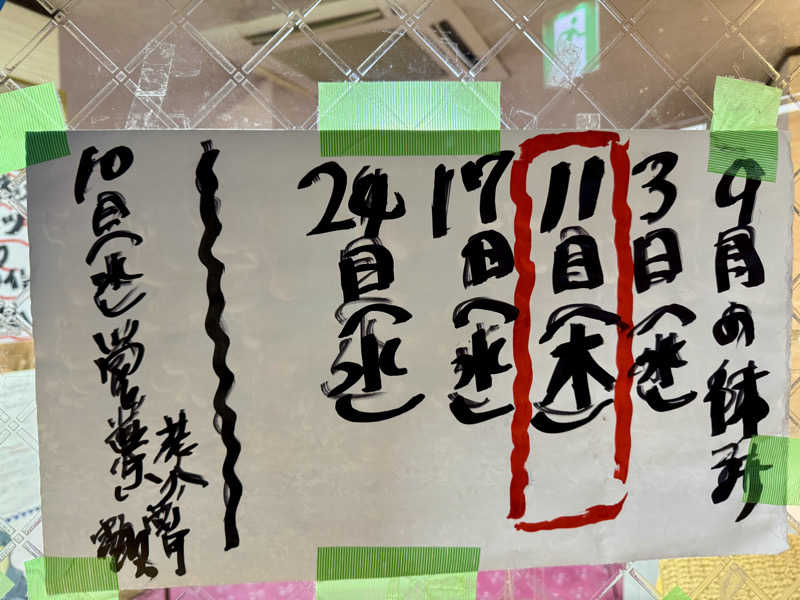 9月の休み
3日(水)
11日(木)
17日(水)
24日(水)
10日(水)営業